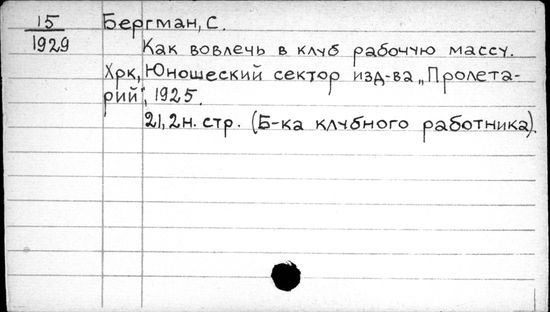 15
1929
Бергман, С.
Как вовлечь в клуб рабочую массу.
Хрк, Юношеский сектор изд-ва „Пролета-
рий", 1925.
21, 2н. стр. (Б-ка клубного работника).